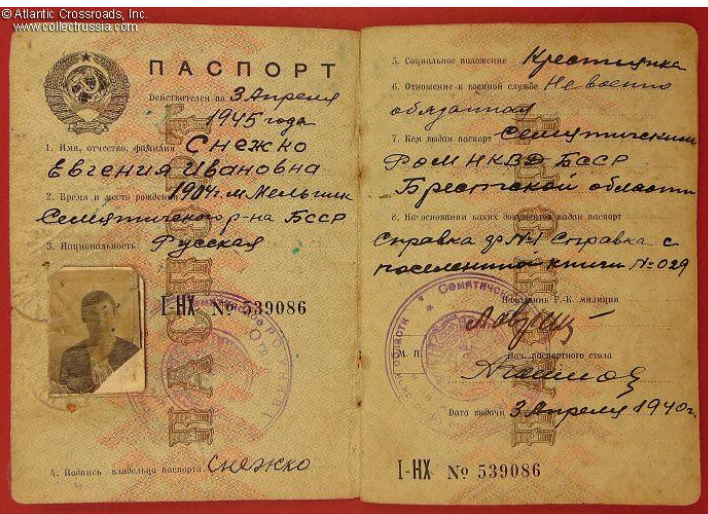 © Atlantic Crossroads, Inc.
www.collectrussia.com
ПАСПОРТ
Действителен по 3 Апреля
1945 года
1. Имя, отчество, фамилия Снежко
Евгения Ивановна
2. Время и место рождения 1904 г. м. Мельник
Семятичского р-на БССР
3. Национальность Русская
I-НХ № 539086
4. Подпись владельца паспорта Снежко
5. Социальное положение Крестьянка
6. Отношение к военной службе Не военно
обязанная
7. Кем выдан паспорт Семятичским
РОМ НКВД БССР
Брестской области
8. На основании каких документов выдан паспорт
Справка №1 Справка с
поселенной книги №029
Начальник Р.-К. милиции
М. П.
Нач. паспортного стола
Дата выдачи 3 Апреля 1940 г.
I-НХ № 539086